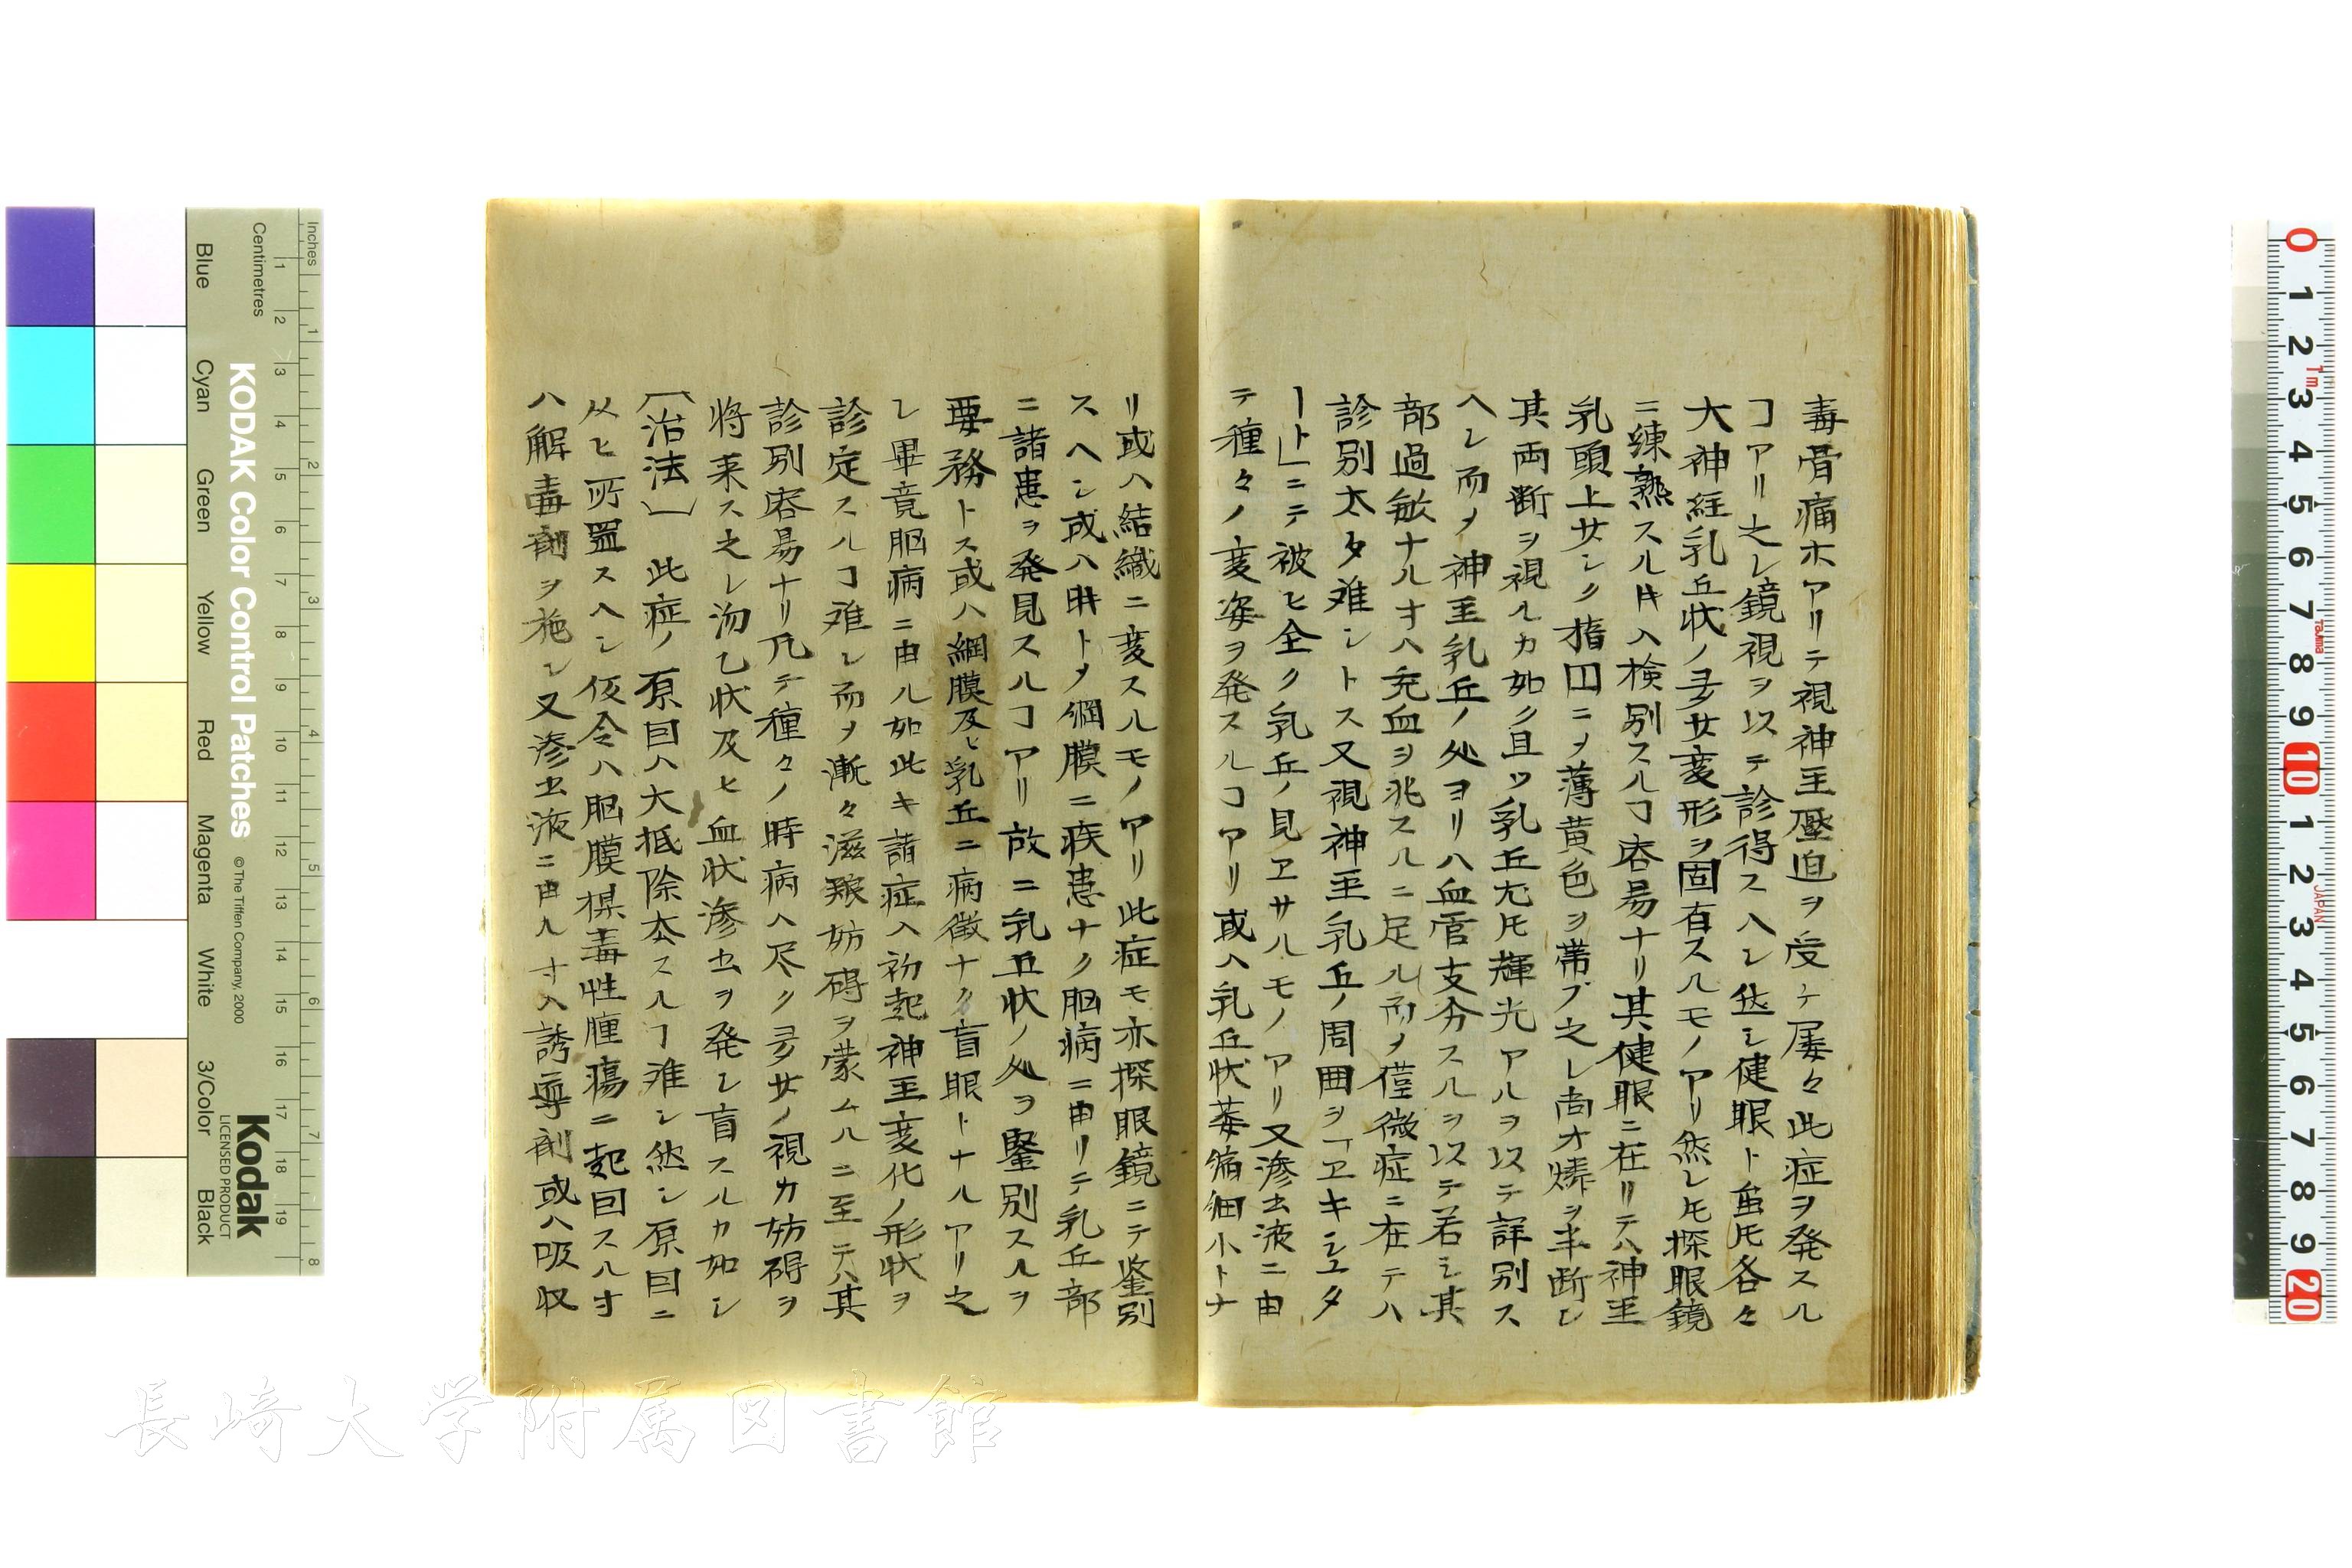 毒骨痛ホアリテ視神圣壓迫ヲ受テ屡々此症ヲ発スル
ヿアリ之レ鏡視ヲ以テ診得スヘシ然レ健眼ト虽𪜈各々
大神経乳丘状ノ多少変形ヲ固有スルモノアリ然レ𪜈探眼鏡
ニ練熟スル時ハ検別スルヿ容易ナリ其健眼ニ在リテハ神圣
乳頭上少シク指囗ニメ薄黄色ヲ帯ブ之レ尚オ燐ヲ半断シ
其両断ヲ視ルカ如ク且ツ乳丘尤𪜈輝光アルヲ以テ詳別ス
ヘシ而メ神圣乳丘ノ处ヨリハ血管支分スルヲ以テ若シ其
部過敏ナルオハ充血ヲ兆スルニ足ル而メ僅微症ニ在テハ
診別太タ难シトス又視神圣乳丘ノ周囲ヲ「ヱキシユタ
ート」ニテ被ヒ全ク乳丘ノ見ヱサルモノアリ又滲出液ニ由
テ種々ノ変姿ヲ発スルヿアリ或ハ乳丘状萎縮細小トナ
リ或ハ結織ニ変スルモノアリ此症モ亦探眼鏡ニテ鉴別
スヘシ或ハ時トメ網膜ニ疾患ナク脳病ニ由リテ乳丘部
ニ諸患ヲ発見スルヿアリ故ニ乳丘状ノ处ヲ鑒別スルヲ
要務トス或ハ網膜及ヒ乳丘ニ病徴ナク盲眼トナルアリ之
レ畢竟脳病ニ由ル如此キ諸症ハ初起神圣変化ノ形状ヲ
診定スルヿ难シ而メ漸々滋飱妨碍ヲ蒙ムルニ至テハ其
診別容易ナリ凡テ種々ノ時病ハ尽ク多少ノ視力妨碍ヲ
将来ス之レ沕乙状及ヒ血状滲出ヲ発シ盲スルカ如シ
〔治法〕 此症ノ原因ハ大抵除去スルヿ难シ然シ原因ニ
从ヒ所置スヘシ仮令ハ脳膜楳毒性腫瘍ニ起因スルオ
ハ解毒剤ヲ施シ又滲出液ニ由ルオハ誘導剤或ハ吸収
Inches
Centimetres
KODAK Color Control Patches
© The Tiffen Company, 2000
Kodak
LICENSED PRODUCT
Blue
Cyan
Green
Yellow
Red
Magenta
White
3/Color
Black
長崎大学附属図書館